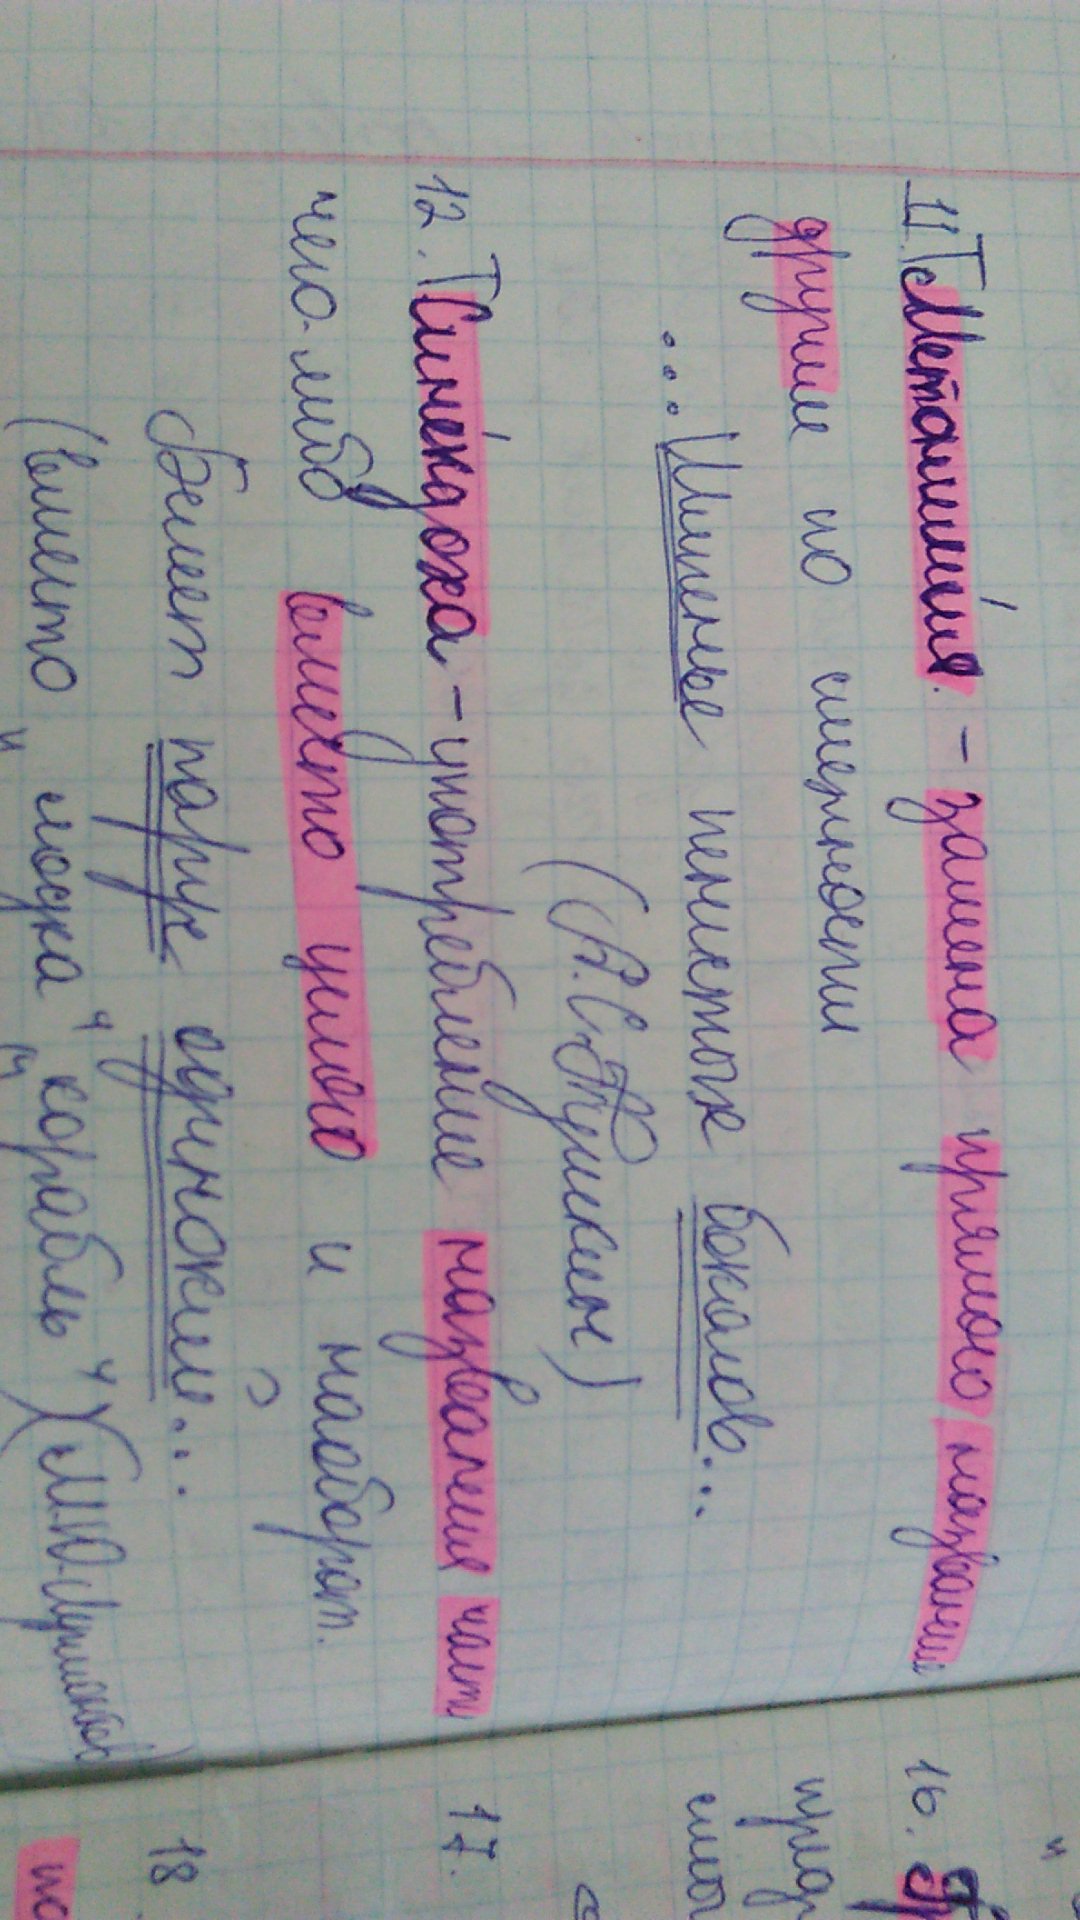 11. Т Метонимия. - замена прямого названия
другим по смежности
...Шипенье пенистых бокалов...
(А.С. Пушкин)
12. Т Синекдоха - употребление названия части
чего-либо вместо целого и наоборот.
Белеет парус одинокий...
(вместо "лодка" "корабль") (М.Ю. Лермонтов)
16.
прид
17.
18